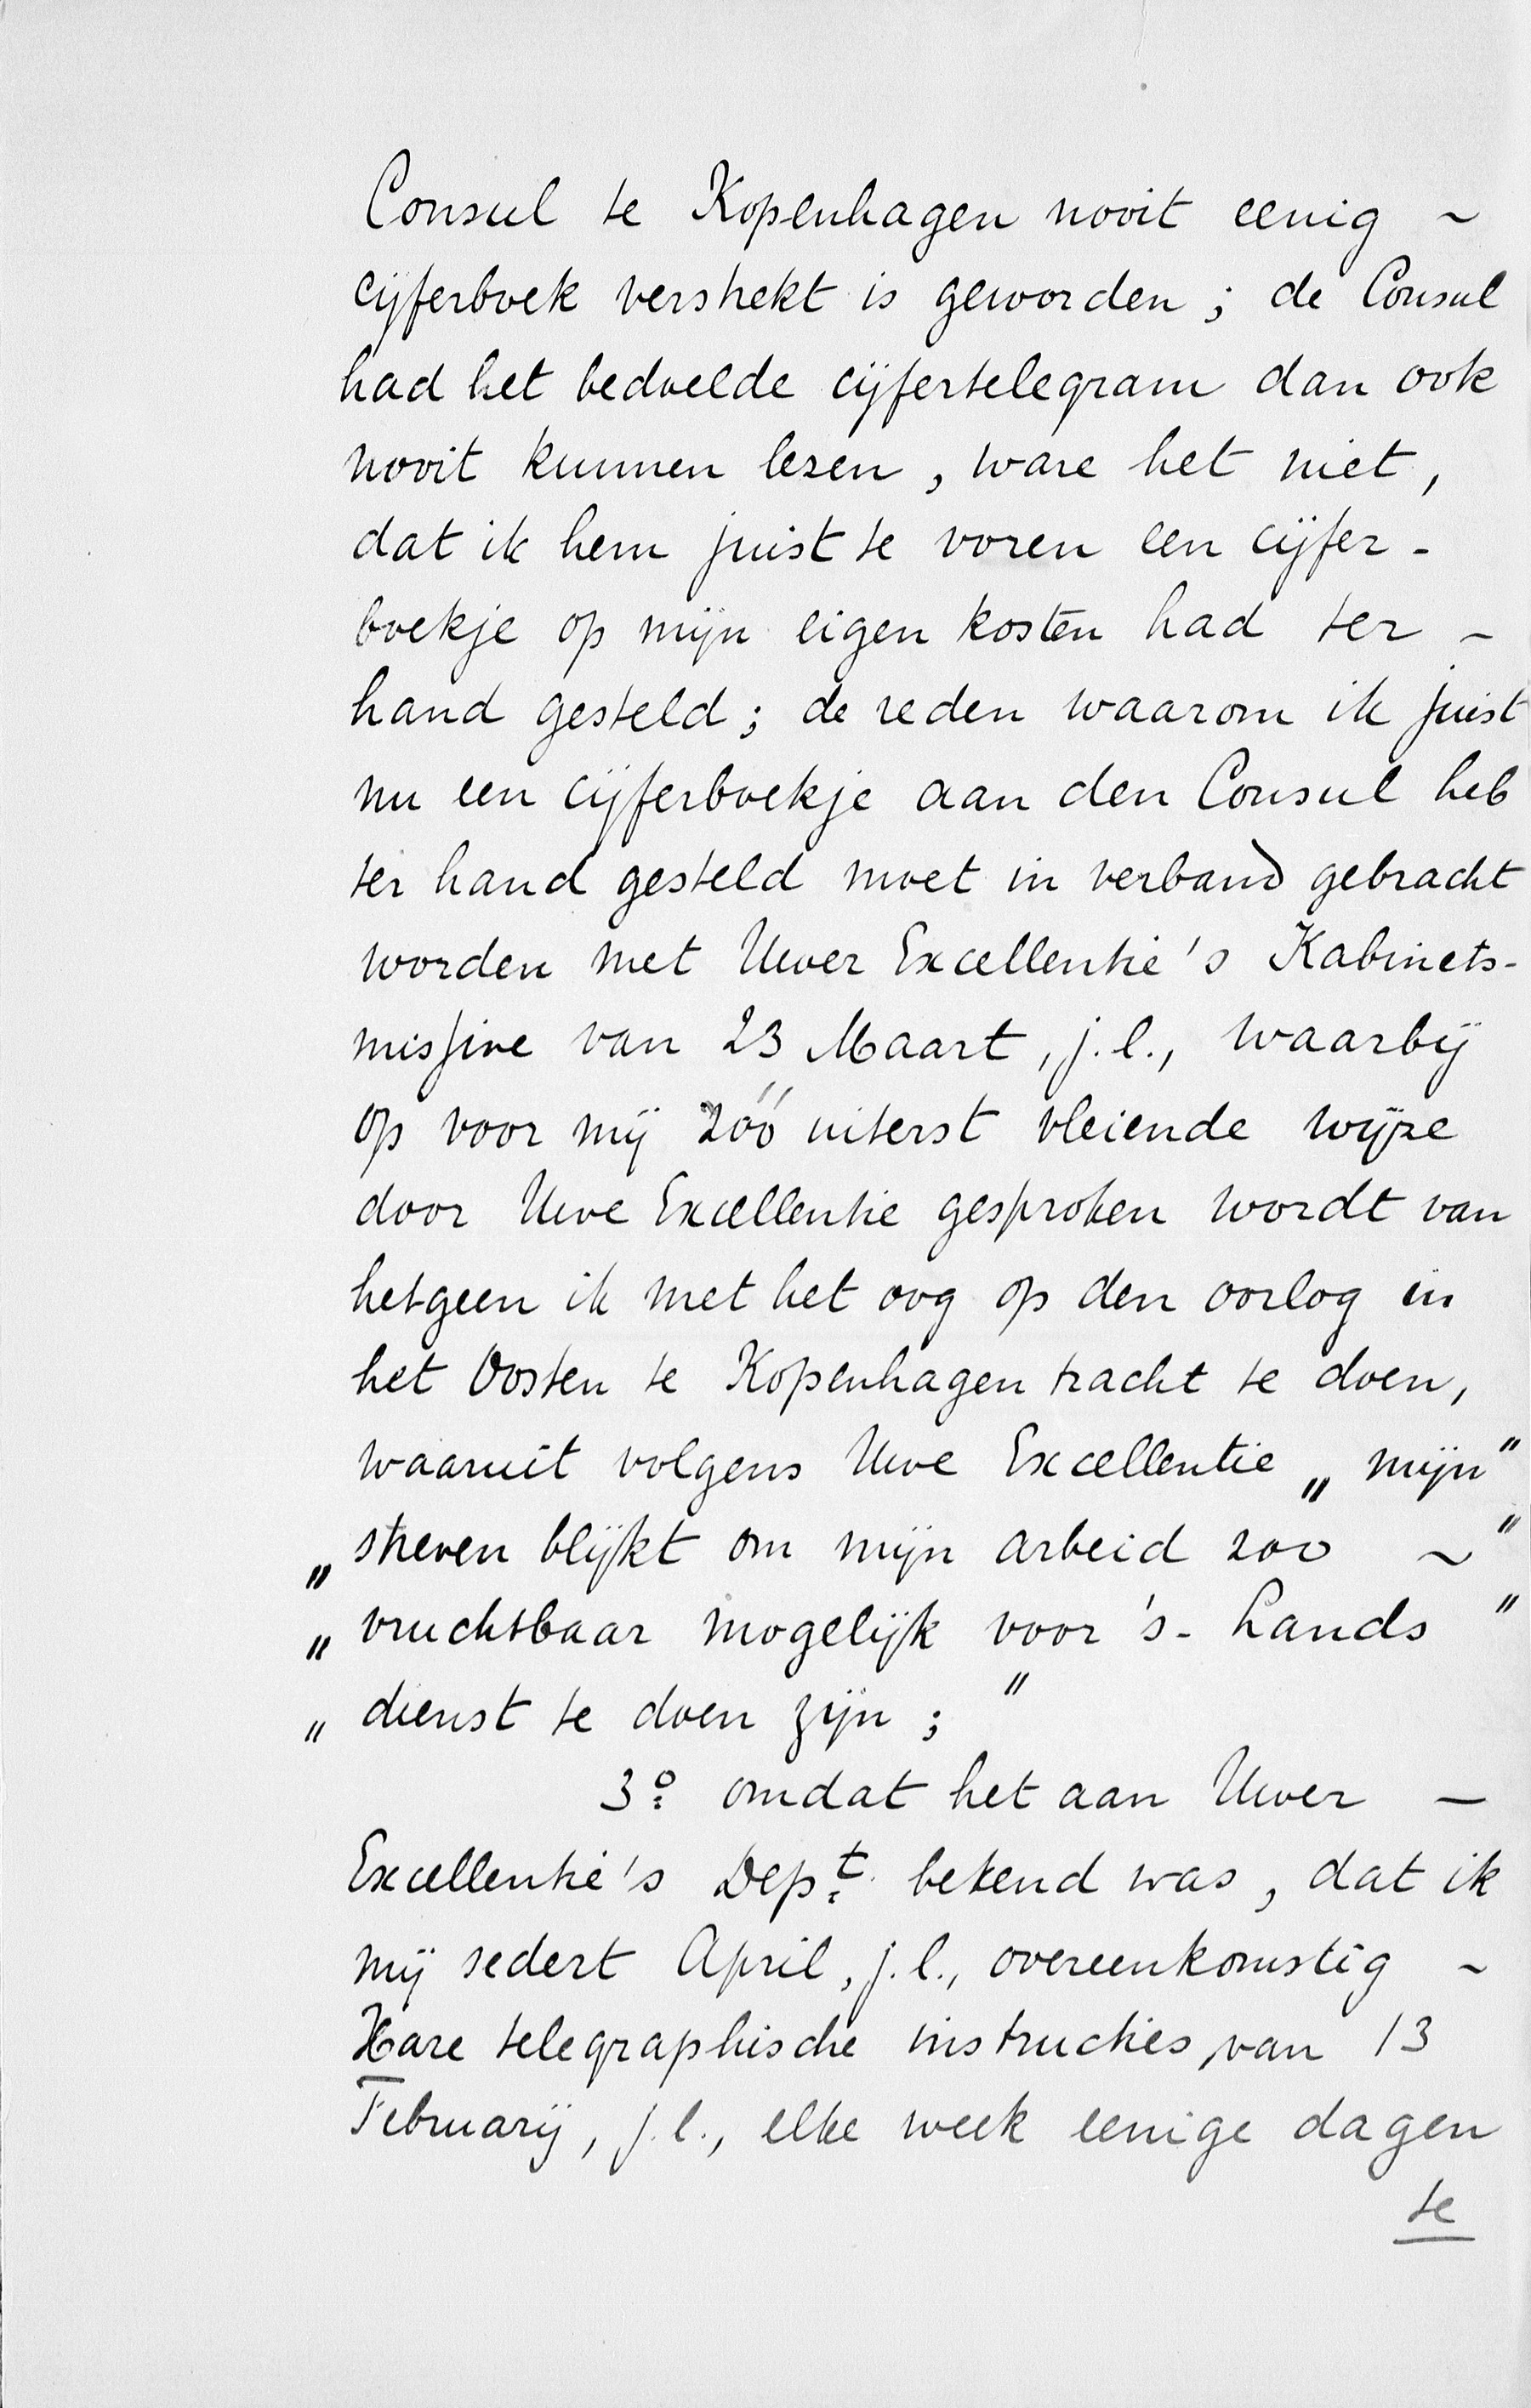 Consul te Kopenhagen nooit eenig ~
cijferboek verstrekt is geworden; de Consul
had het bedoelde cijfertelegram dan ook
nooit kunnen lezen, ware het niet,
dat ik hem juist te voren een cijfer-
boekje op mijn eigen kosten had ter ~
hand gesteld; de reden waarom ik juist
nu een cijferboekje aan den Consul heb
ter hand gesteld moet in verband gebracht
worden met Uwer Excellentie's Kabinets-
missive van 23 Maart, j.l., waarbij
op voor mij zóó uiterst vleiende wijze
door Uwe Excellentie gesproken wordt van
hetgeen ik met het oog op den oorlog in
het Oosten te Kopenhagen tracht te doen,
waaruit volgens Uwe Excellentie „mijn"
„streven blijkt om mijn arbeid zoo ~"
„vruchtbaar mogelijk voor 's-Lands"
„dienst te doen zijn;"
3º omdat het aan Uwer —
Excellentie's Dept. bekend was, dat ik
mij sedert April, j.l., overeenkomstig ~
Hare telegraphische instructies, van 13
Februarij, j.l., elke week eenige dagen
te